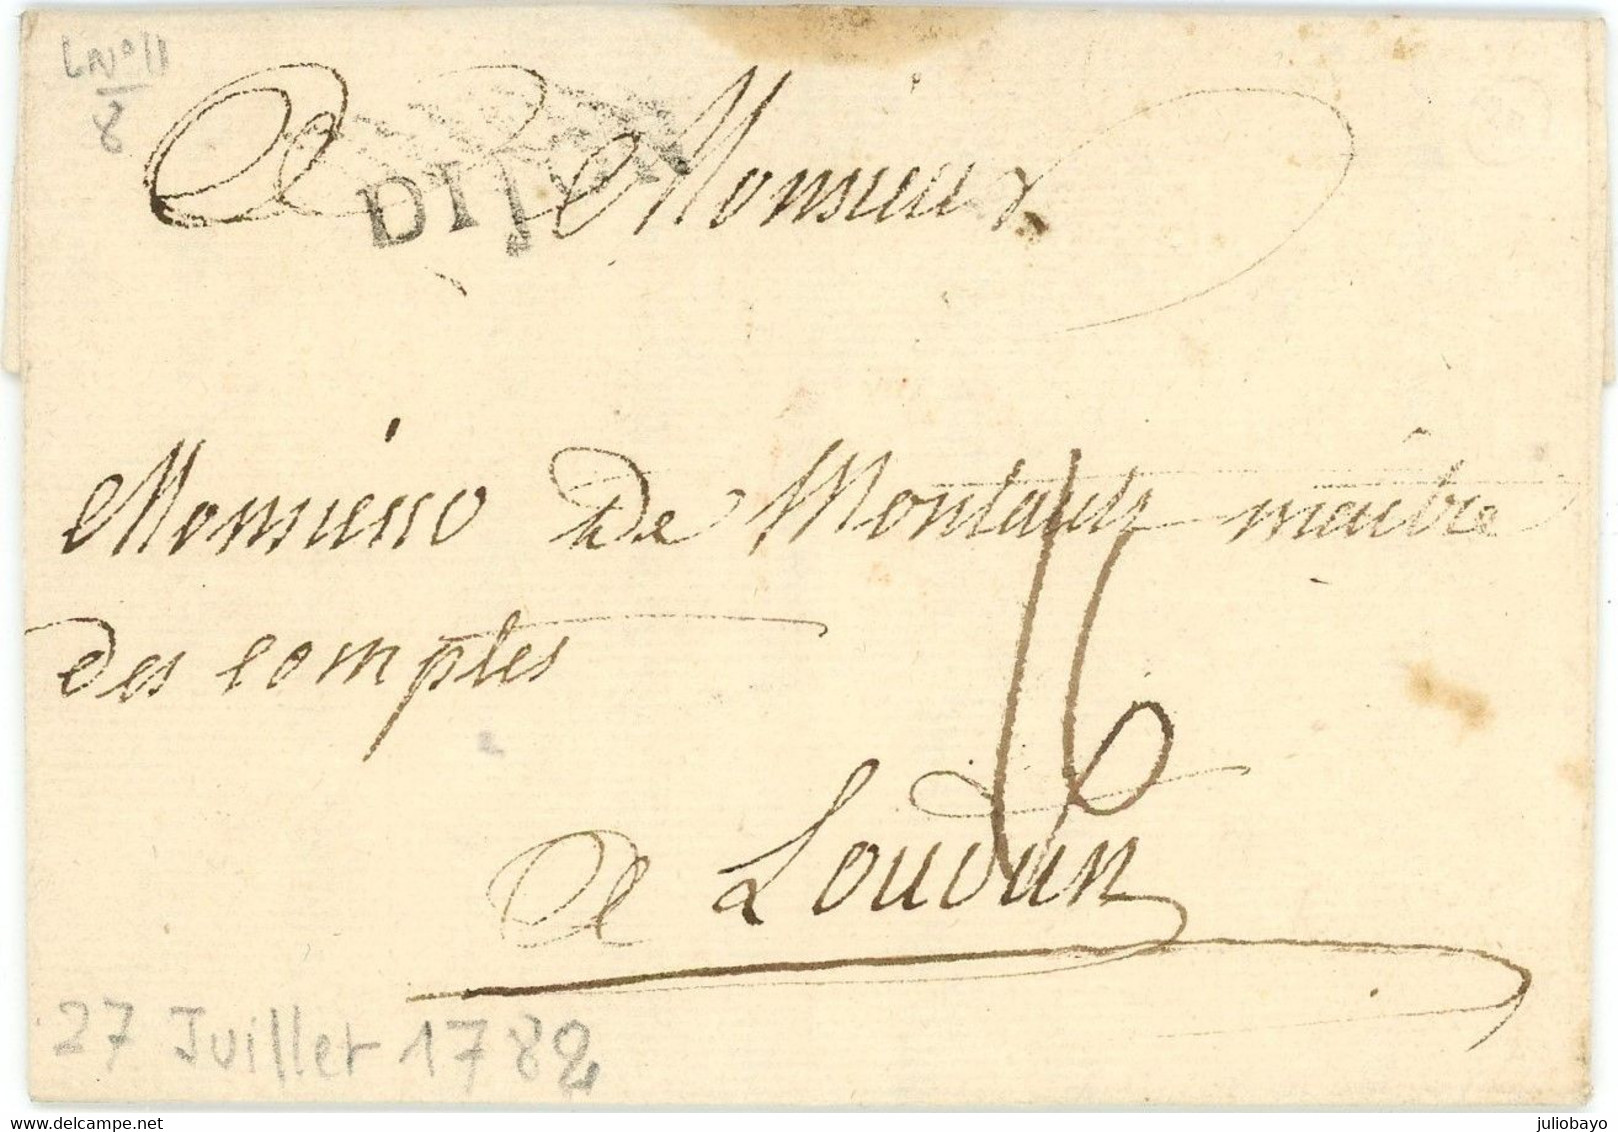 LN°11
8
A Monsieur
DIJON
Monsieur de Montaux maitre
des comptes
16
a Loudun
27 Juillet 1782
www.delcampe.net
juliobayo